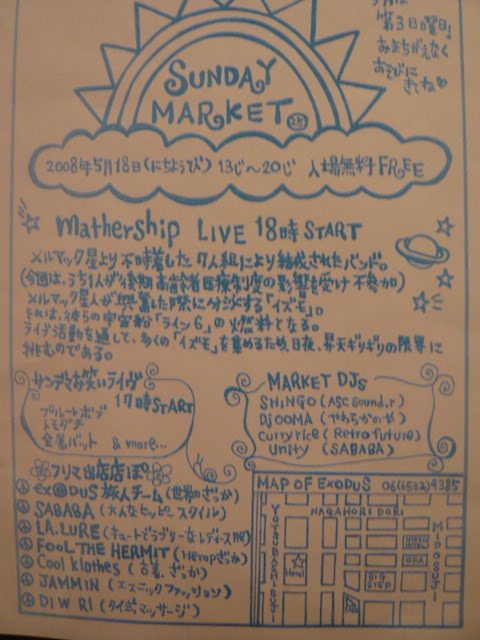 第3日曜日!
おまちがえなく
あそびに
きてね♡
SUNDAY
MARKET
2008年5月18日(にちようび) 13じ〜20じ 入場無料 FREE
mathership LIVE 18時 START
メルマック星より不時着した7人組により結成されたバンド。
(今回は、うち1人が後期高齢者医療制度の影響を受け不参加)
メルマック星人が興奮した際に分泌する「イズモ」。
それは、彼らの宇宙船「ライン6」の燃料となる。
ライブ活動を通して、多くの「イズモ」を集めるため、日夜、昇天ギリギリの限界に
挑むのである。
サンデーお笑いライヴ
17時START
プルートポプ
トモダチ
金属バット & more...
MARKET DJs
SHINGO (ASC Sound.r)
DJ OOMA (やわらかのや)
curryrice (Retro future)
unity (SABABA)
フリマ出店店ぽ
exodus 旅人チーム (世界のざっか)
SABABA (大人なヒッピースタイル)
LA.LURE (キュートでラブリーなレディース服)
FOOL THE HERMIT (Hempざっか)
Cool Klothes (古着、ざっか)
JAMMIN (エスニックファッション)
DIWRI (タイ式マッサージ)
MAP OF EXODUS 06(6532)9385
NAGAHORI DORI
YOTSUBASHI SUJI
MIDOSUJI
Here!
BIG
STEP
OPA